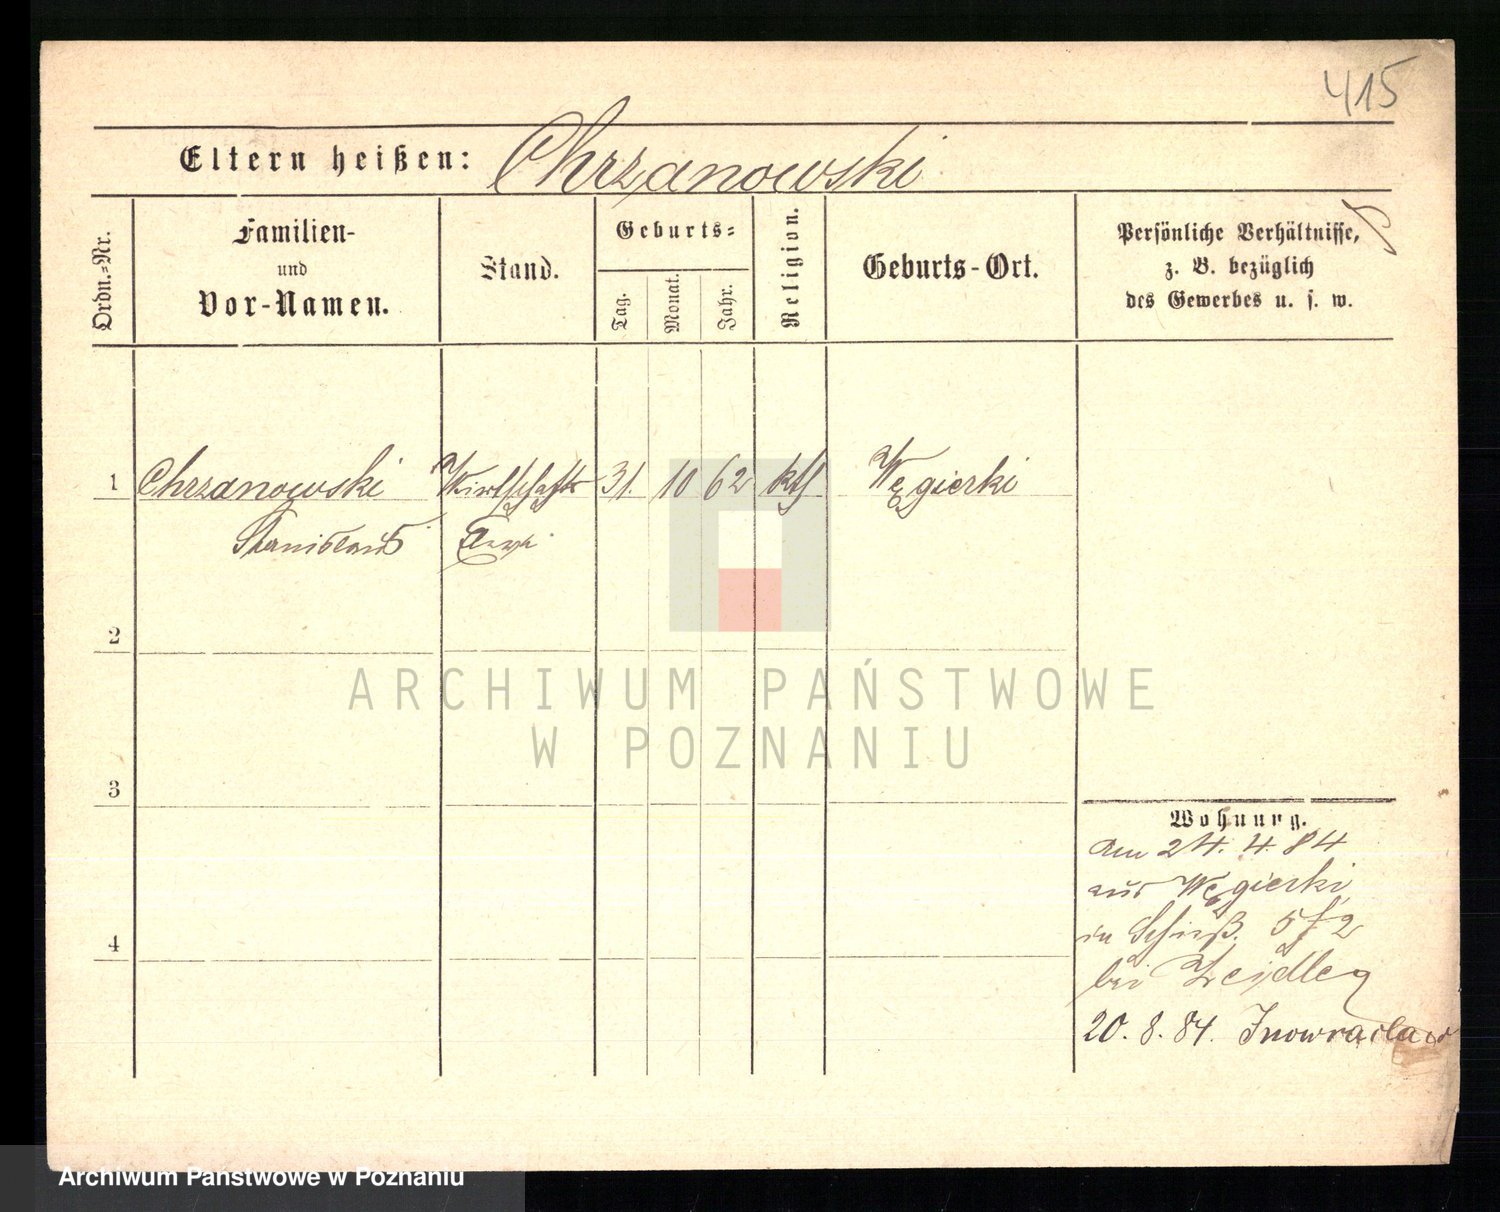 415
Eltern heißen: Chrzanowski
Ordn.=Nr.
Familien-
und
Vor-Namen.
Stand.
Geburts=
Tag.
Monat.
Jahr.
Religion.
Geburts-Ort.
Persönliche Verhältnisse,
z. B. bezüglich
des Gewerbes u. s. w.
1 Chrzanowski Wirtschafts 31. 10 62 kth Węgierki
Stanislaus
2
3
4
Wohnung.
am 24. 4. 84
aus Węgierki
in Schieß. 5/2
bei Zeidler
20. 8. 84. Inowraclaw
ARCHIWUM PAŃSTWOWE
W POZNANIU
Archiwum Państwowe w Poznaniu